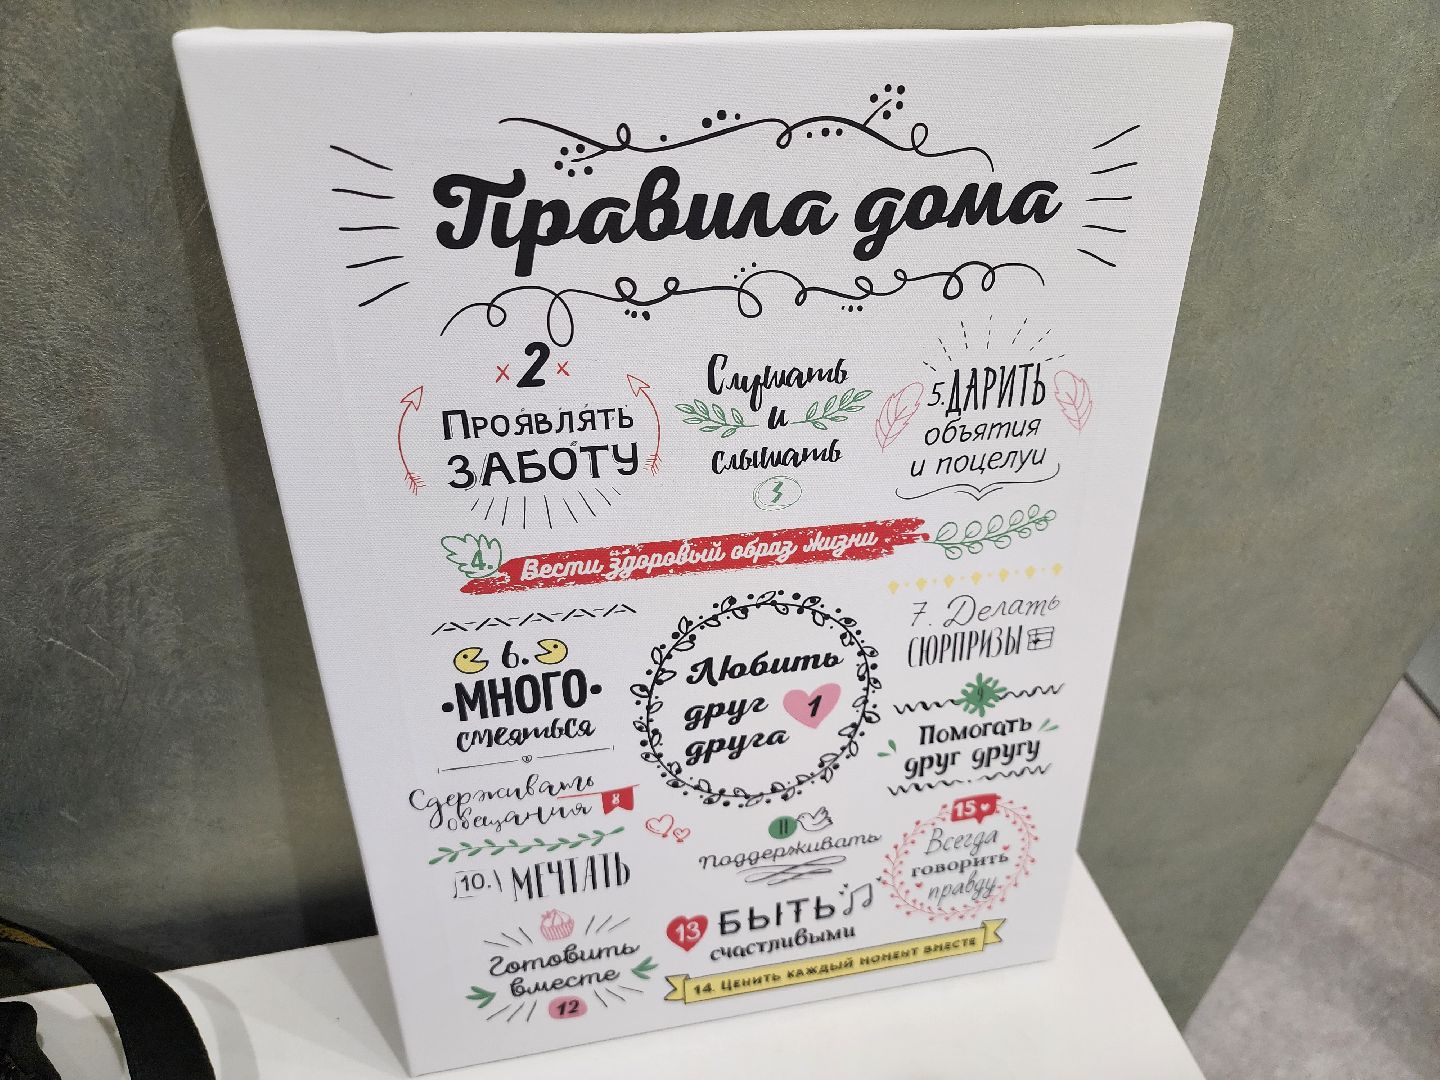 Правила дома
2
ПРОЯВЛЯТЬ
ЗАБОТУ
Слушать
и
слышать
3
5. ДАРИТЬ
объятия
и поцелуи
4. Вести здоровый образ жизни
6.
МНОГО
смеяться
Любить
друг
друга
1
7. Делать
СЮРПРИЗЫ
Сдерживать
обещания 8
9
Помогать
друг другу
10. МЕЧТАТЬ
11
Поддерживать
15
Всегда
говорить
правду
Готовить
вместе
12
13 БЫТЬ
счастливыми
14. ЦЕНИТЬ КАЖДЫЙ МОМЕНТ ВМЕСТЕ